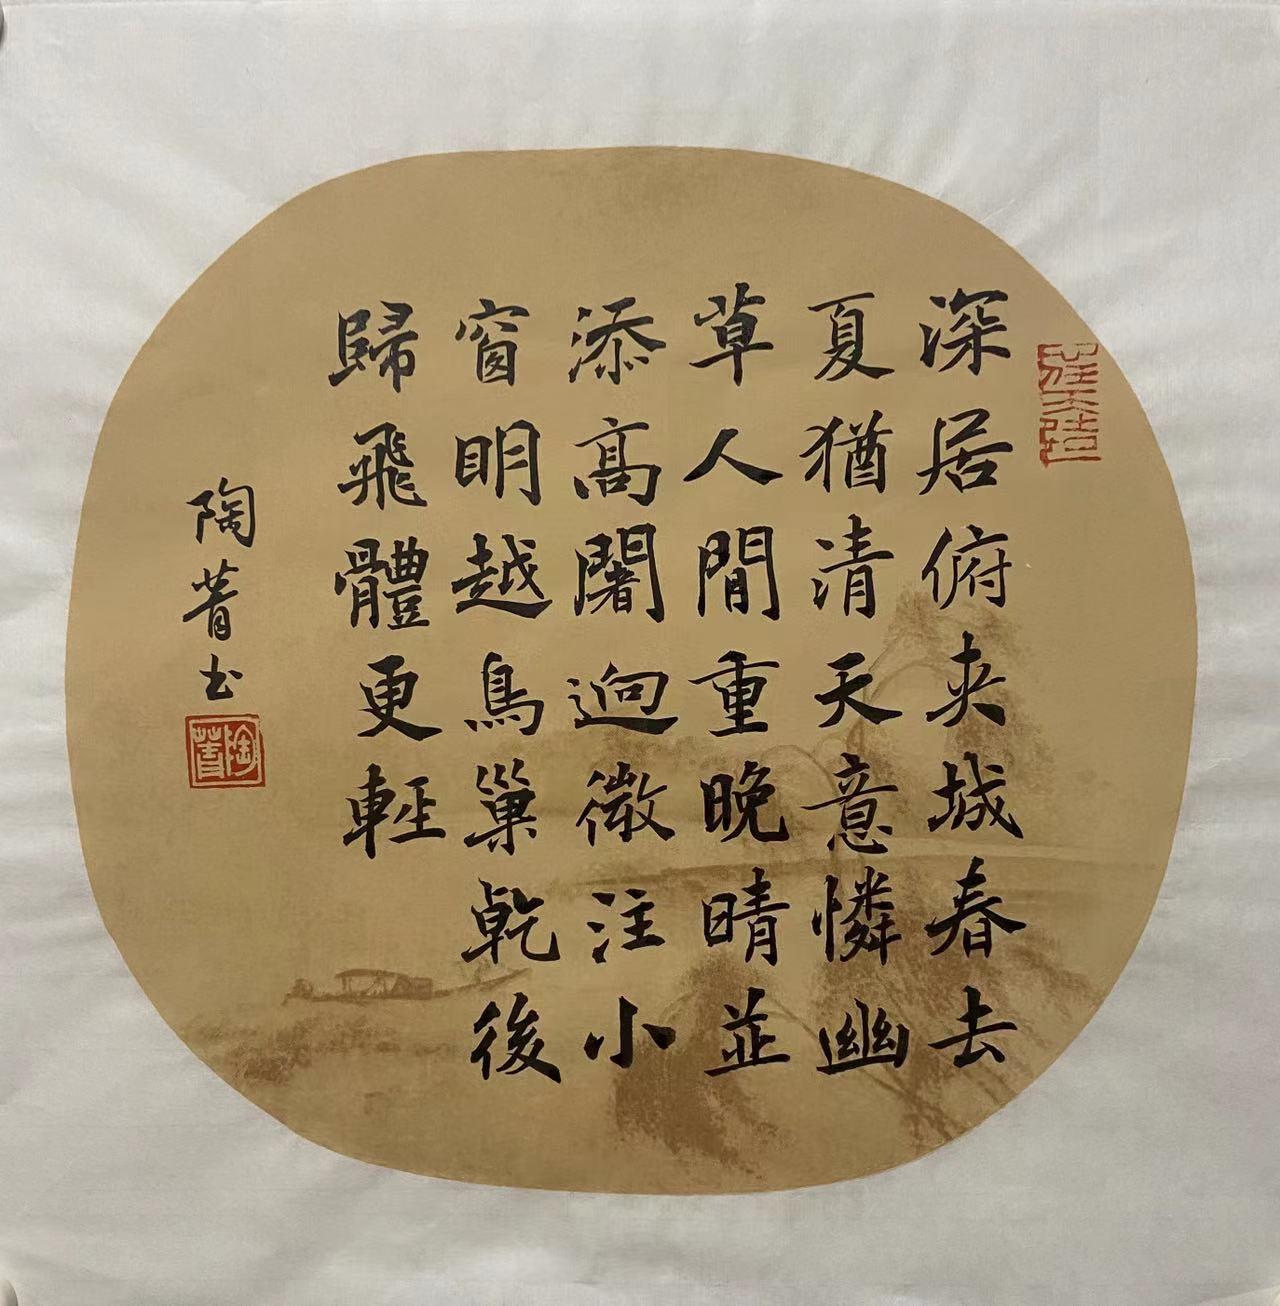 深居俯夹城春去
夏猶清天意憐幽
草人間重晚晴並
添高闍迥微注小
窗明越鳥巢乾後
歸飛體更輕
陶菁书
陶菁